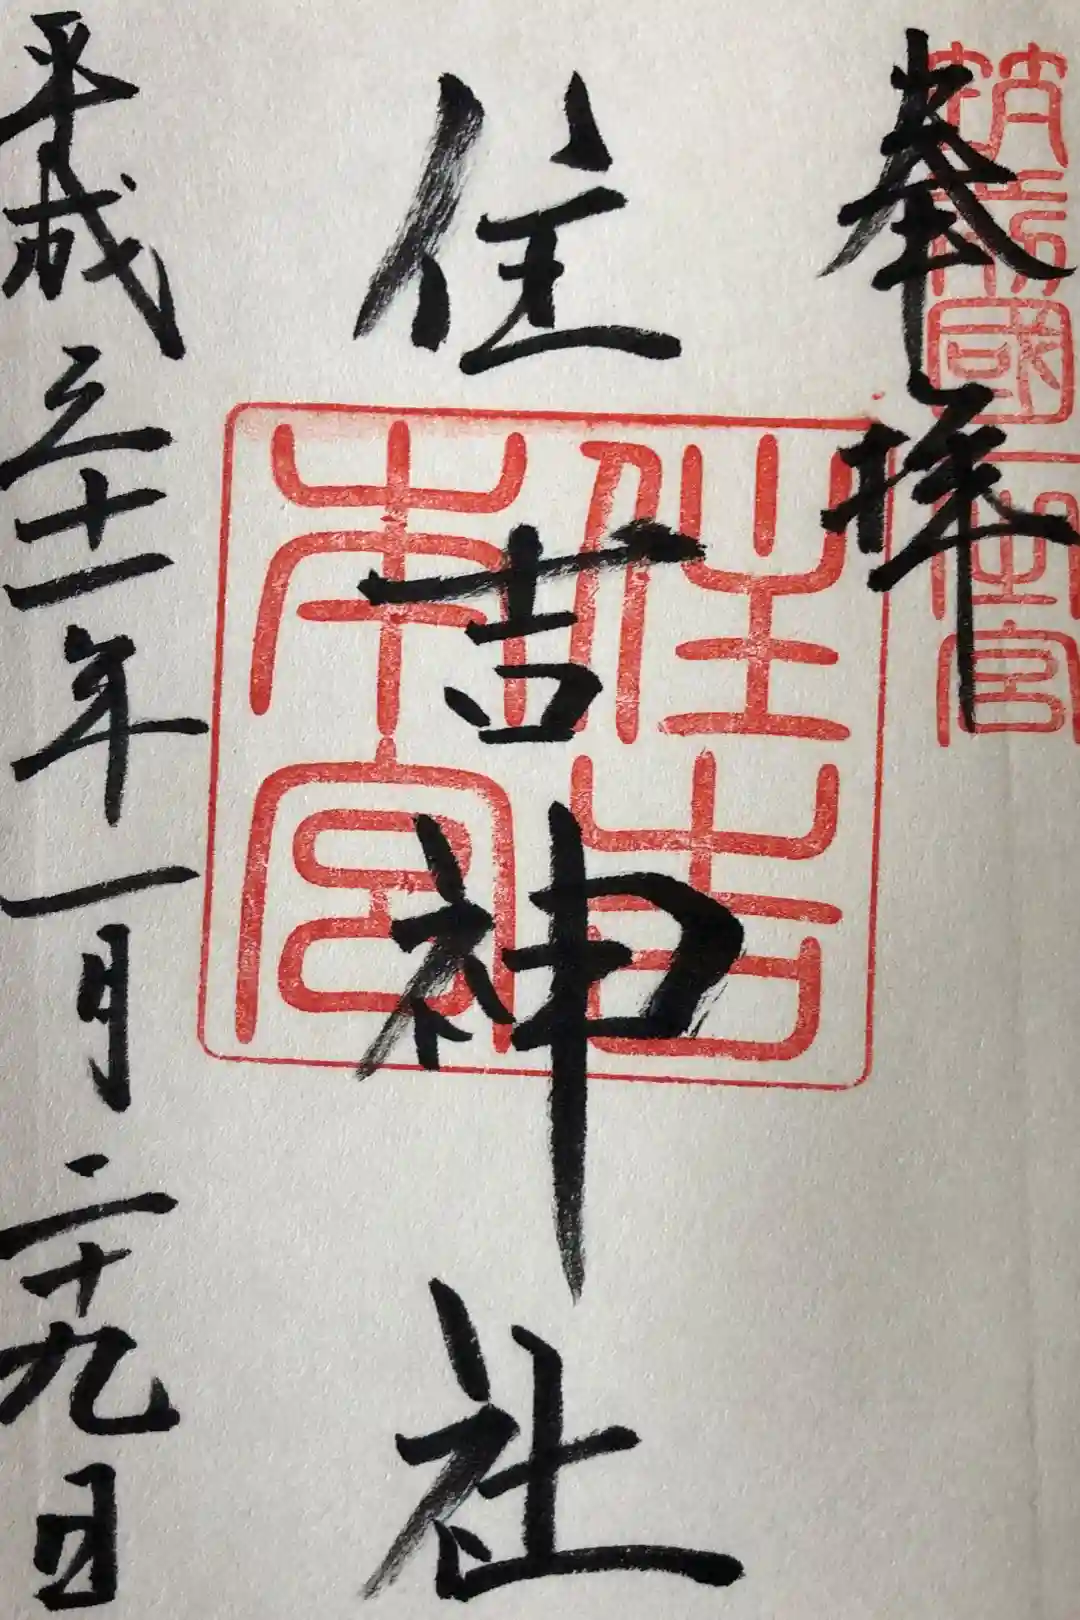 奉拝
筑前國一之宮
住吉神社
住吉
本宮
平成三十一年一月二十九日